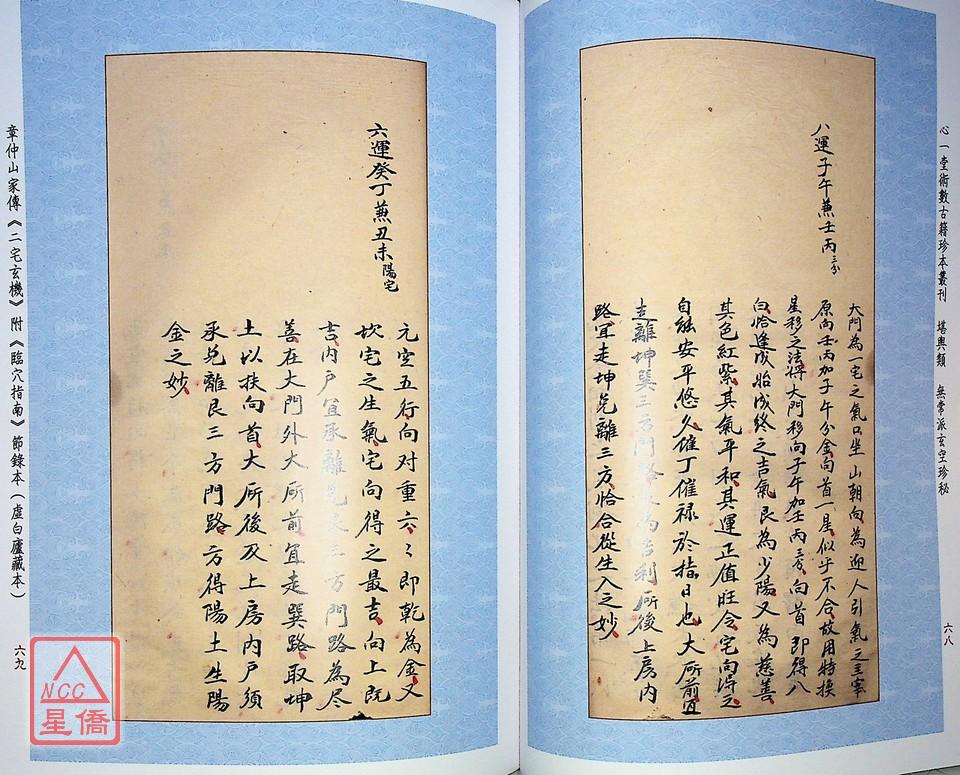 心一堂術數古籍珍本叢刊　堪輿類　無常派玄空珍秘
六八
八運子午兼壬丙三分
大門為一宅之氣口坐山朝向為迎人引氣之主宰
原向壬丙加子午分金向首一星似乎不合故用特換
星移之法将大門移向子午加壬丙三分向首即得八
白恰逢成始成终之吉氣艮為少陽又為慈善
其色紅紫其氣平和其運正值旺令宅向得之
自能安平悠久催丁催禄於指日也大厛前宜
走離坤巽三方門路為吉利厛後上房内
路宜走坤兑離三方恰合從生入之妙
六運癸丁兼丑未陽宅
元空五行向对重六々即乾為金又
坎宅之生氣宅向得之最吉向上既
吉内户宜承離兑三方門路為尽
善在大門外大厛前宜走巽路取坤
土以扶向首大厛後及上房内户須
承兑離艮三方門路方得陽土生陽
金之妙
章仲山家傳《二宅玄機》附《臨穴指南》節錄本（虛白廬藏本）
六九
NCC
星僑